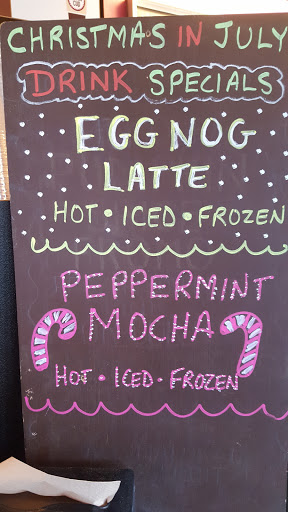 CHRISTMAS IN JULY
DRINK SPECIALS
EGG NOG
LATTE
HOT • ICED • FROZEN
PEPPERMINT
MOCHA
HOT • ICED • FROZEN